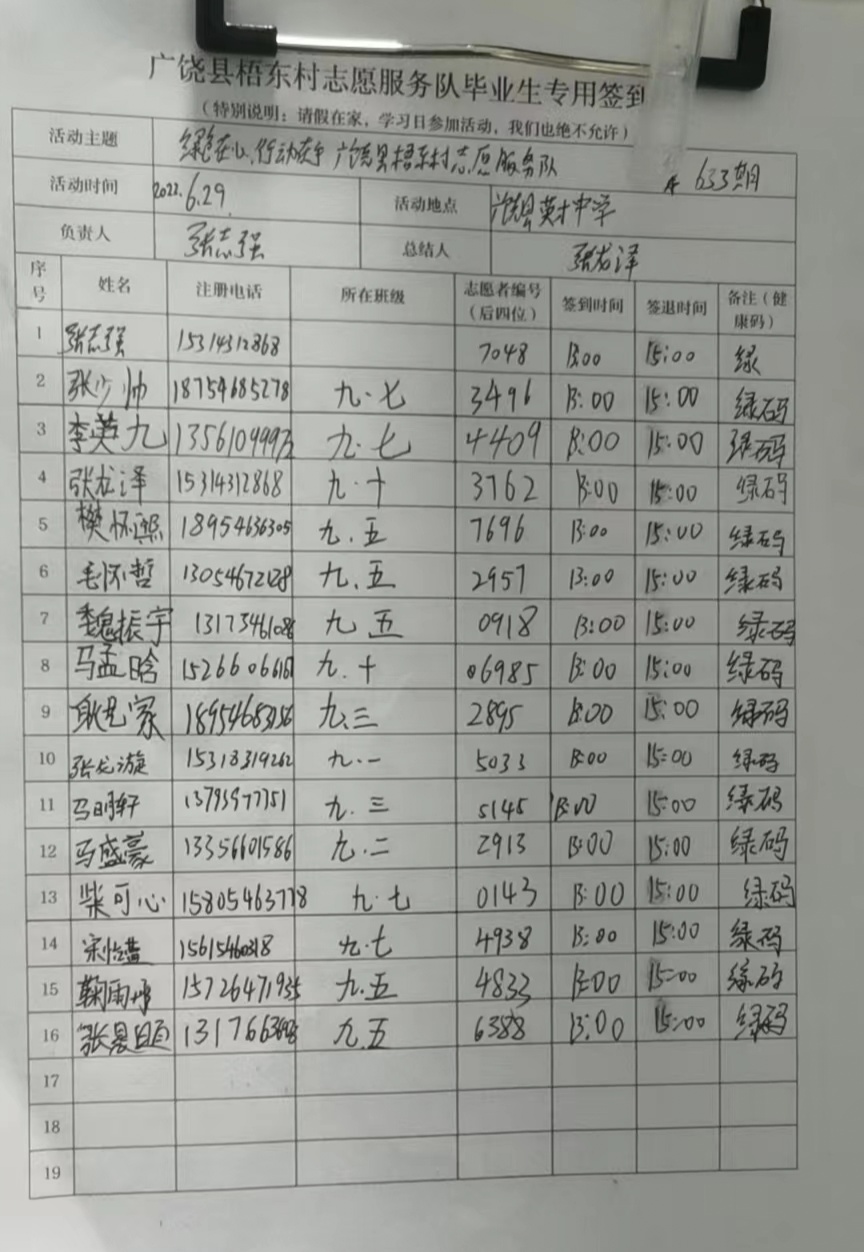 广饶县梧东村志愿服务队毕业生专用签到
（特别说明：请假在家，学习日参加活动，我们也绝不允许）
活动主题 绿色在心,行动在手 广饶县梧东村志愿服务队 633期
活动时间 2022.6.29 活动地点 广饶县英才中学
负责人 张志强 总结人 张龙泽
序号 姓名 注册电话 所在班级 志愿者编号（后四位） 签到时间 签退时间 备注（健康码）
1 张志强 15314312868 7048 13:00 15:00 绿
2 张少帅 18754685278 九.七 3496 13:00 15:00 绿码
3 李英九 九.七 4409 13:00 15:00 绿码
4 张龙泽 15314312868 九.十 3762 13:00 15:00 绿码
5 樊怀熙 18954636305 九.五 7696 13:00 15:00 绿码
6 毛怀哲 九.五 2957 13:00 15:00 绿码
7 魏振宇 九 五 0918 13:00 15:00 绿码
8 马孟晗 九.十 06985 13:00 15:00 绿码
9 九.三 2895 13:00 15:00 绿码
10 张龙漩 15318319262 九.一 5033 13:00 15:00 绿码
11 马明轩 九.三 5145 13:00 15:00 绿码
12 马盛豪 13356601586 九.二 2913 13:00 15:00 绿码
13 柴可心 九.七 0143 13:00 15:00 绿码
14 九.七 4938 13:00 15:00 绿码
15 15726471935 九.五 4833 13:00 15:00 绿码
16 九.五 6388 13:00 15:00 绿码
17
18
19